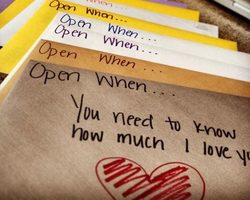 Open When...
Open When...
Open When...
Open When...
Open When...
Open When...
You need to know
how much I love yo